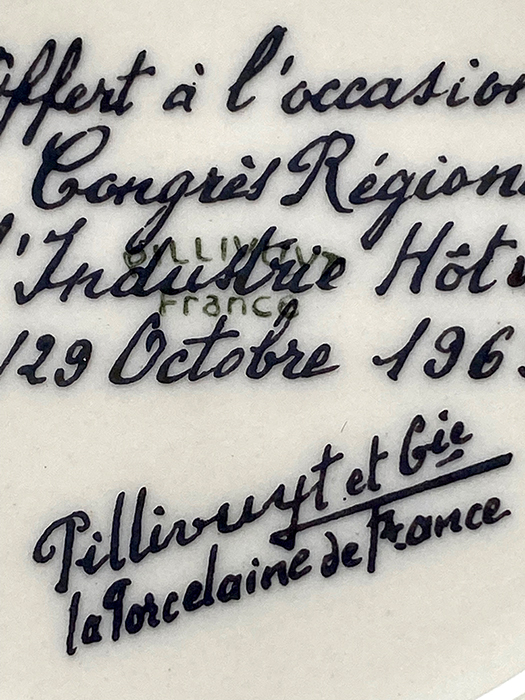 Offert à l'occasion
Congrès Régiona
l'Industrie Hôt
PILLIVUYT
France
/29 Octobre 196
Pillivuyt et Cie
la Porcelaine de France